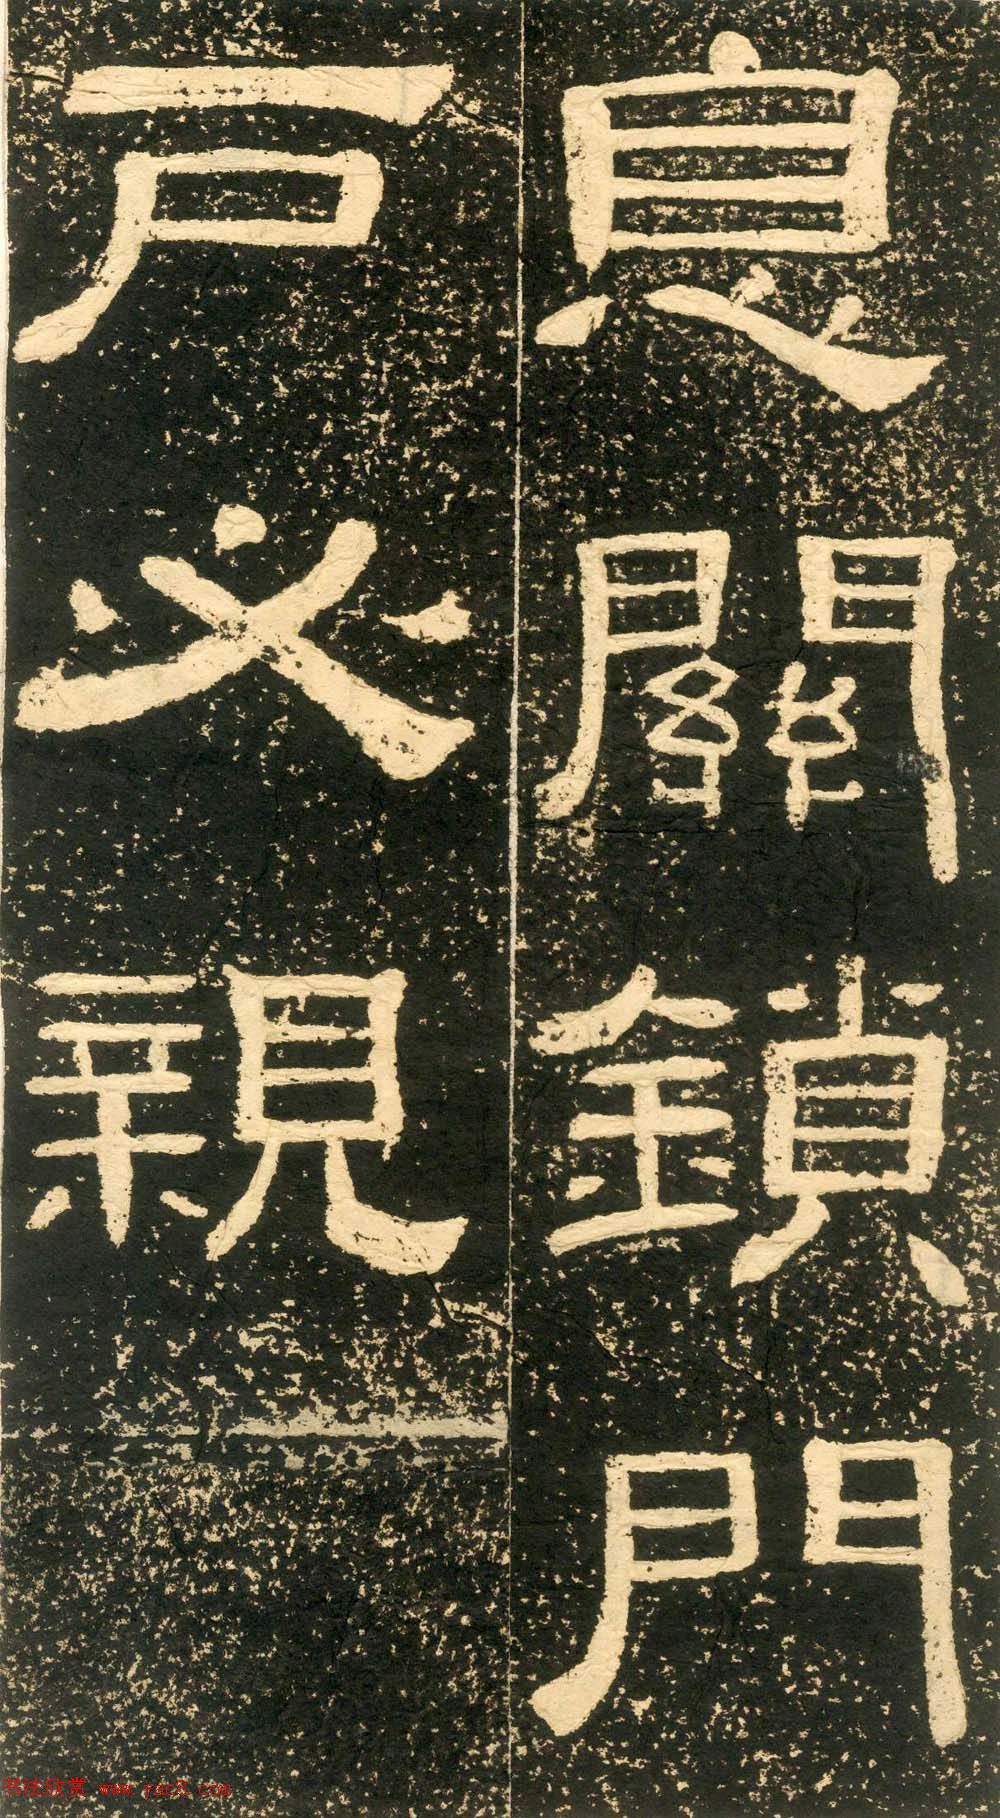 息關鎖門
戶必親
书法欣赏 www.yac8.com